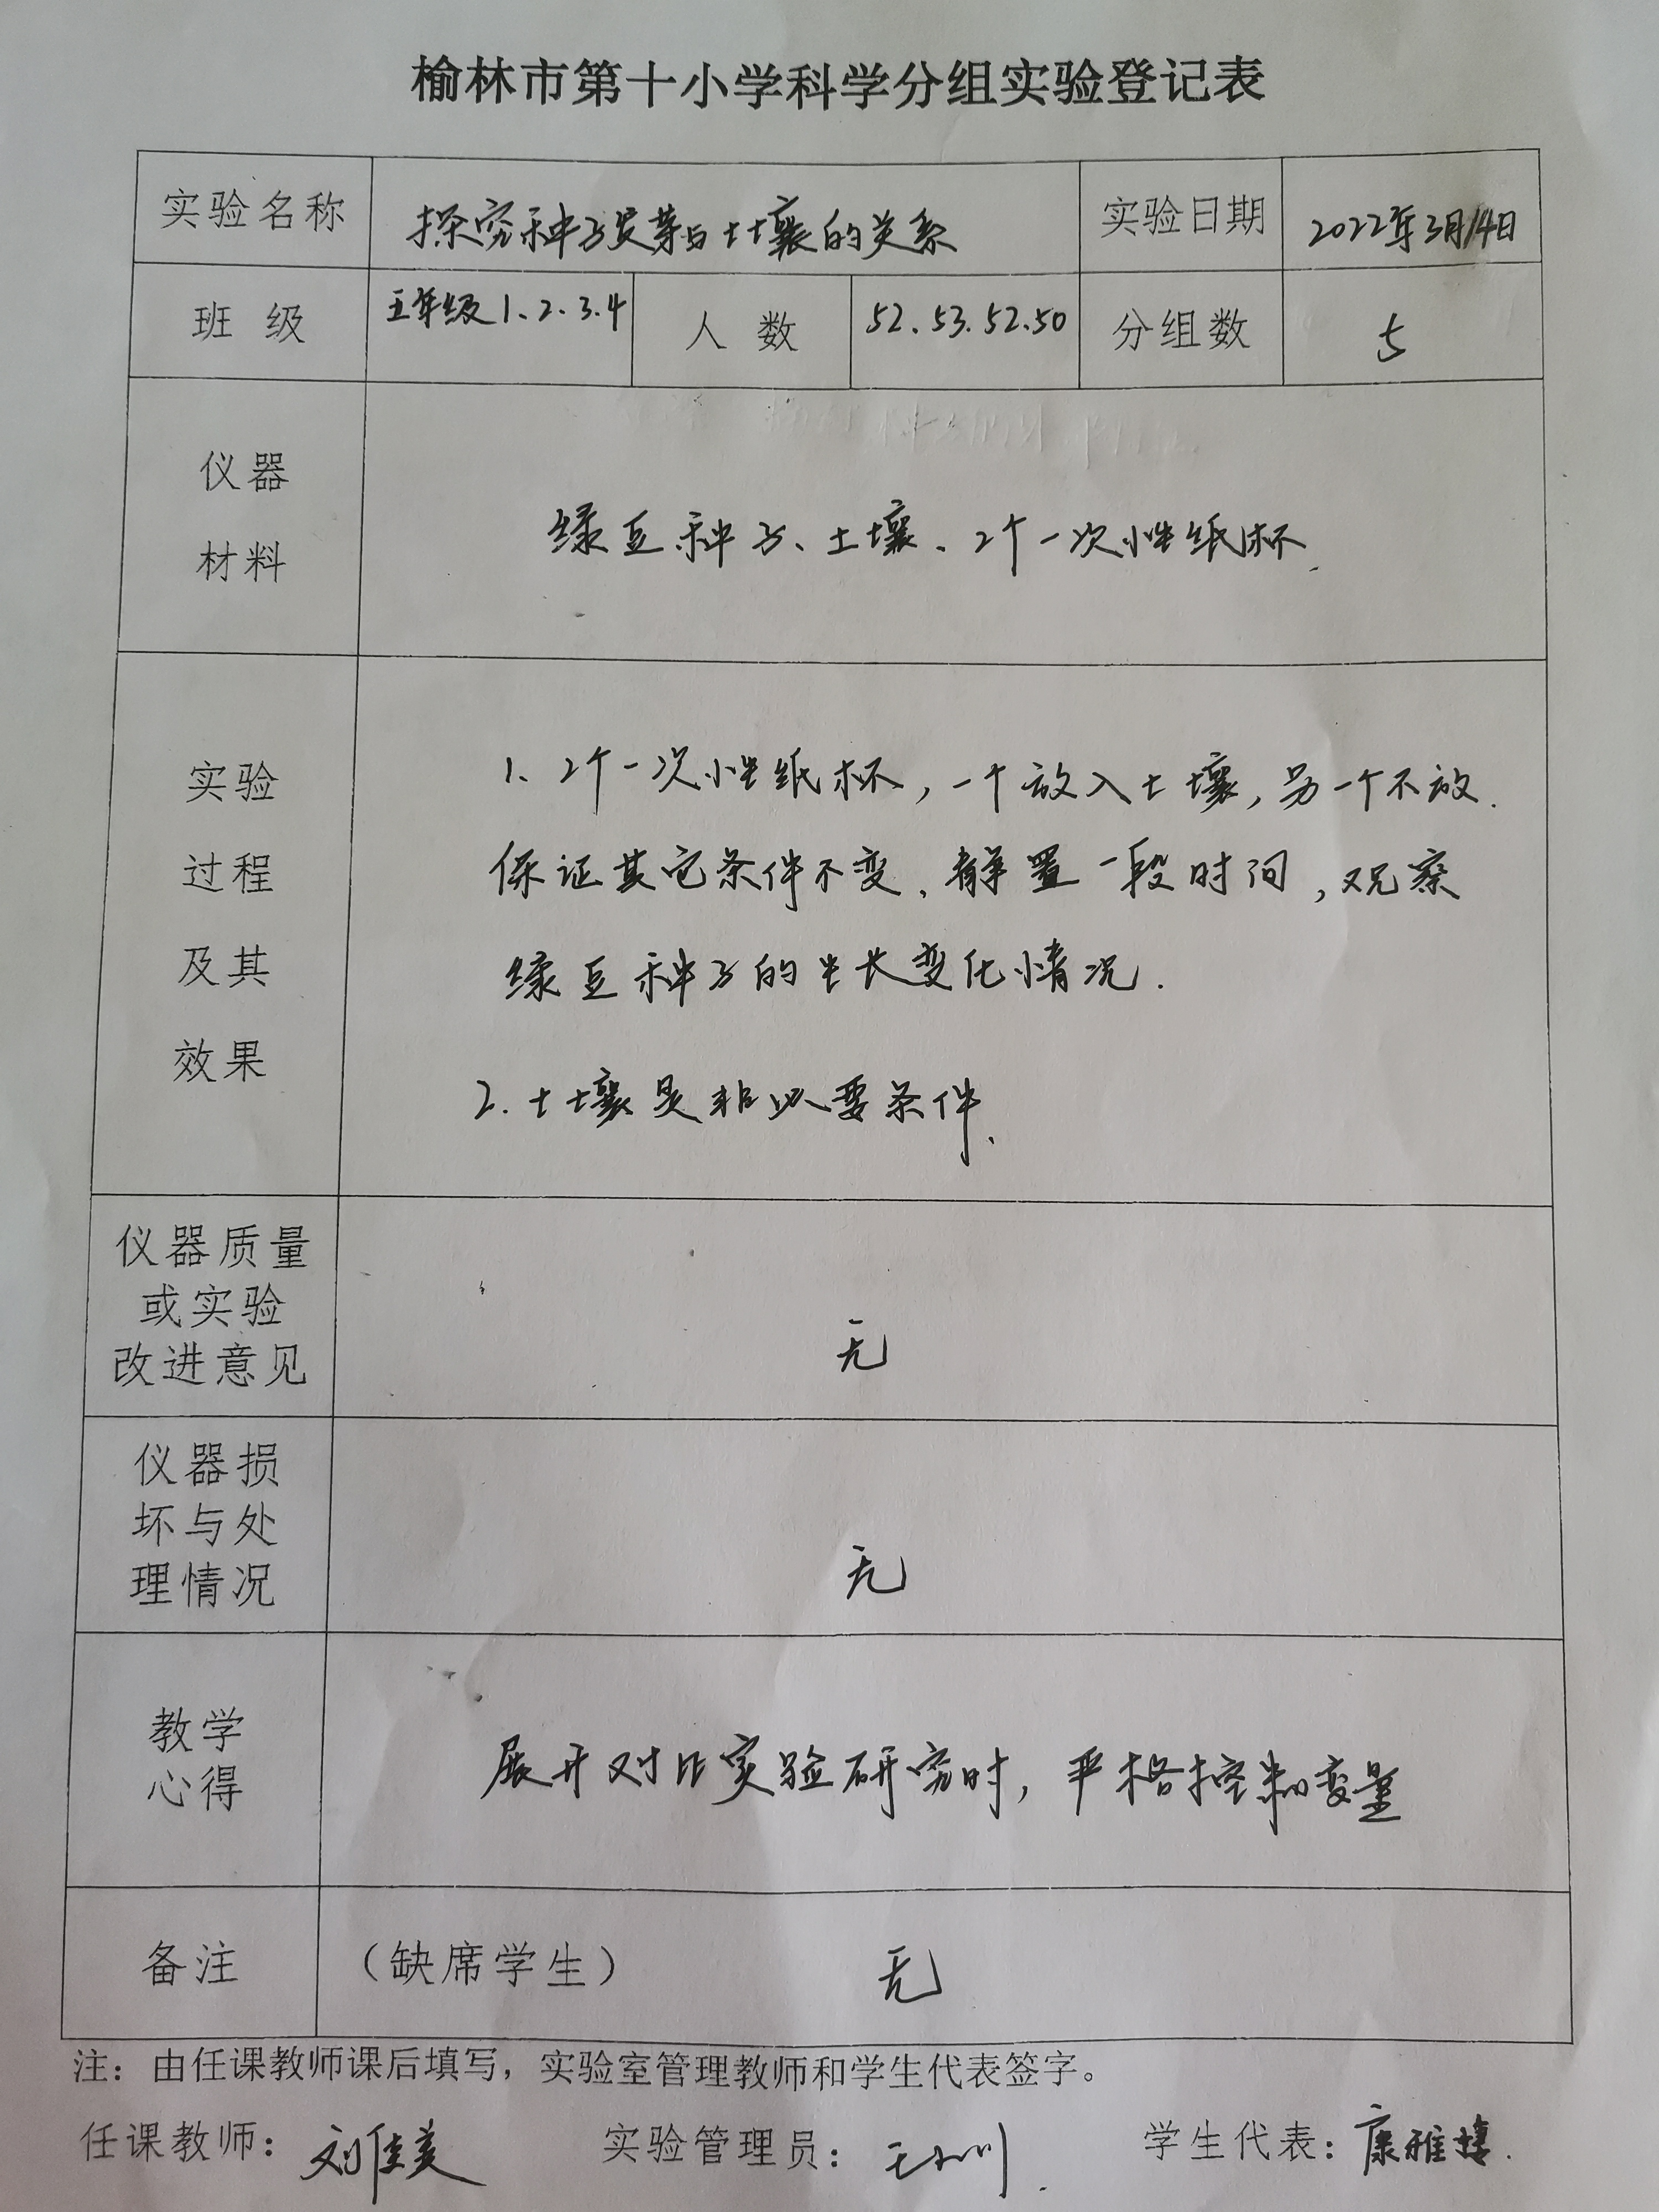 榆林市第十小学科学分组实验登记表
实验名称 探究种子发芽与土壤的关系 实验日期 2022年3月14日
班 级 五年级1、2、3、4 人 数 52、53、52、50 分组数 5
仪器
材料
绿豆种子、土壤、2个一次性纸杯.
实验
过程
及其
效果
1、2个一次性纸杯,一个放入土壤,另一个不放.
保证其它条件不变、静置一段时间,观察
绿豆种子的生长变化情况.
2.土壤是非必要条件、
仪器质量
或实验
改进意见
无
仪器损
坏与处
理情况
无
教学
心得
展开对比实验研究时,严格控制变量
备注 （缺席学生） 无
注：由任课教师课后填写，实验室管理教师和学生代表签字。
任课教师：刘佳美 实验管理员： 学生代表：康雅婧.